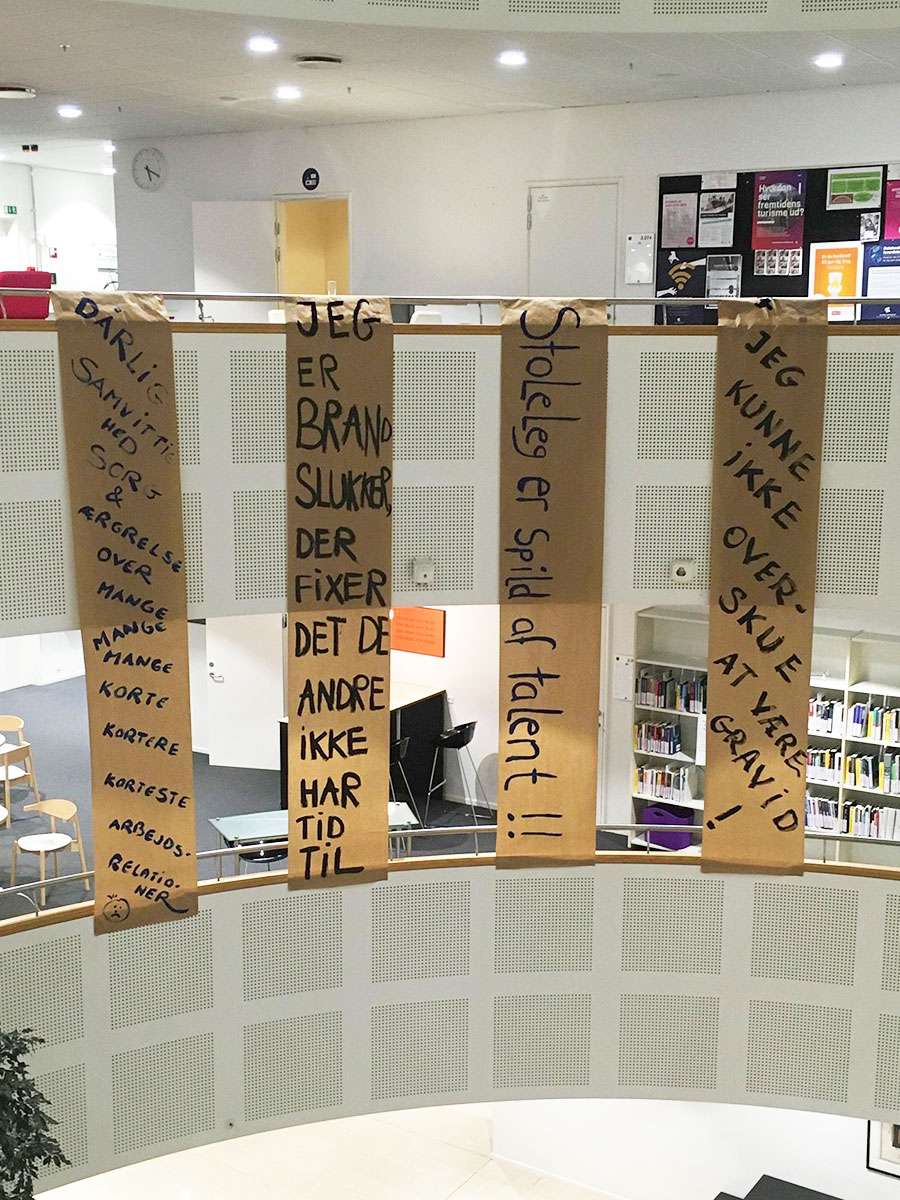 DÅRLIG
SAMVITTIG
HED
SORG
&
ÆRGRELSE
OVER
MANGE
MANGE
MANGE
KORTE
KORTERE
KORTESTE
ARBEJDS-
RELATIO-
NER
JEG
ER
BRAND
SLUKKER,
DER
FiXER
DET DE
ANDRE
iKKE
HAR
TID
TIL
Stoleleg er spild af talent !!
JEG
KUNNE
iKKE
OVER-
SKUE
AT VÆRE
GRAViD
!
Hvordan
ser
fremtidens
turisme ud?